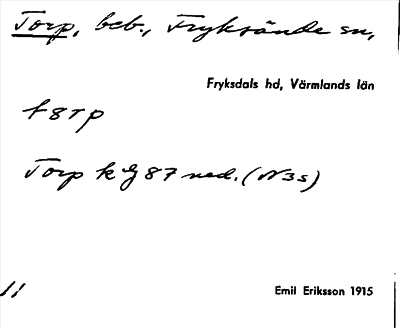 Torp, beb., Fryksände sn,
Fryksdals hd, Värmlands län
Torp k 87 ned. (N3s)
Emil Eriksson 1915
11